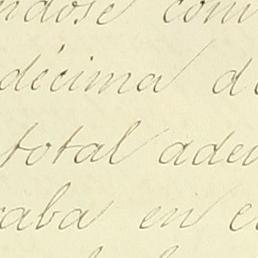 ndose com
décima d
total ade
caba en e